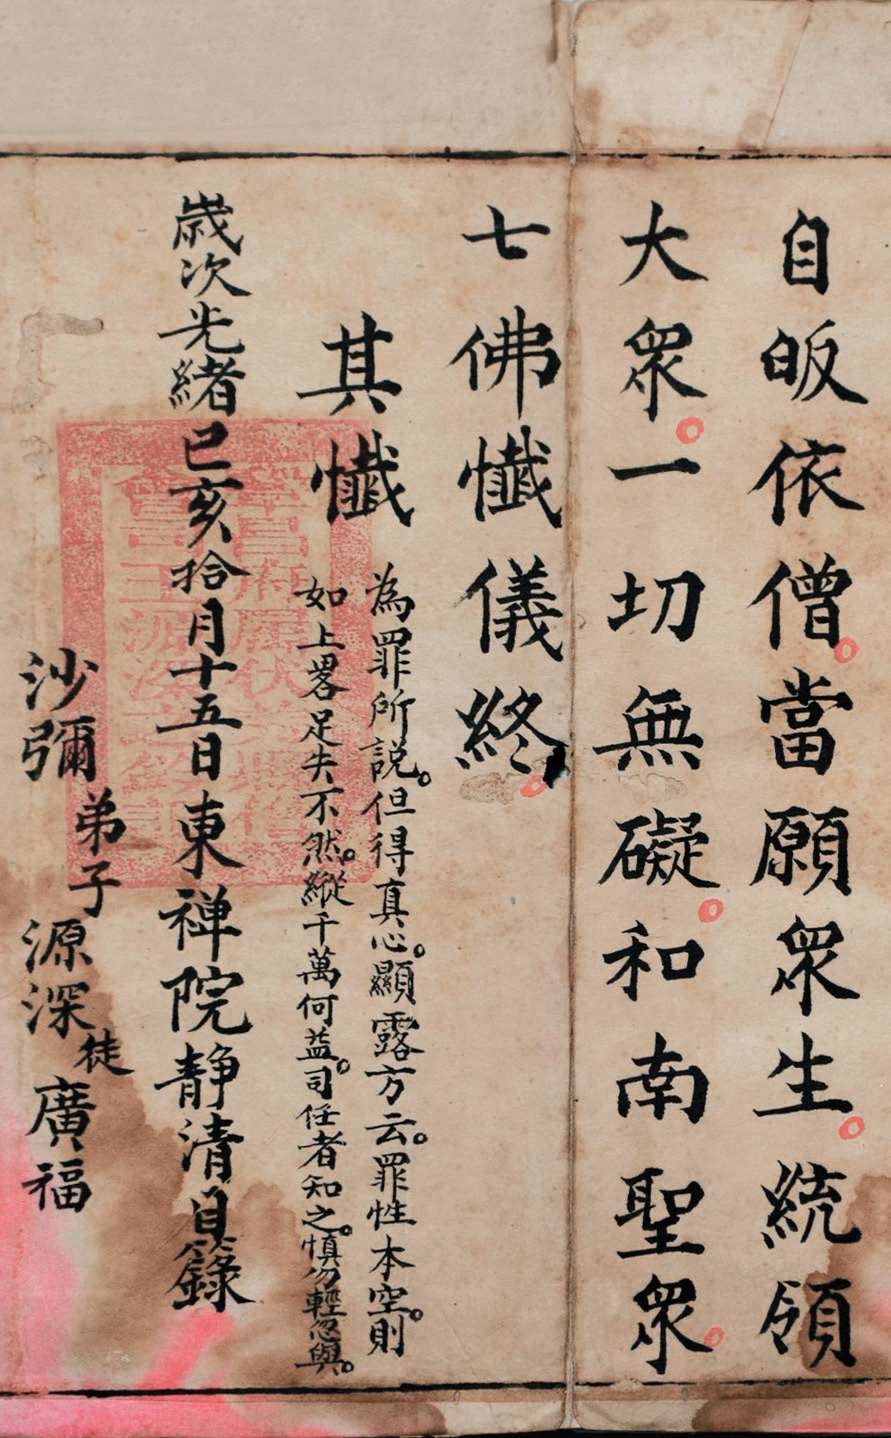 自皈依僧當願眾生統領
大眾一切無礙和南聖眾
七佛懺儀終
其懺
為罪所說但得真心顯露方云罪性本空則
如上畧足失不然縱千萬何益司任者知之慎勿輕忽與
歲次光緒已亥拾月十五日東禅院静清自錄
沙彌弟子源深徒廣福